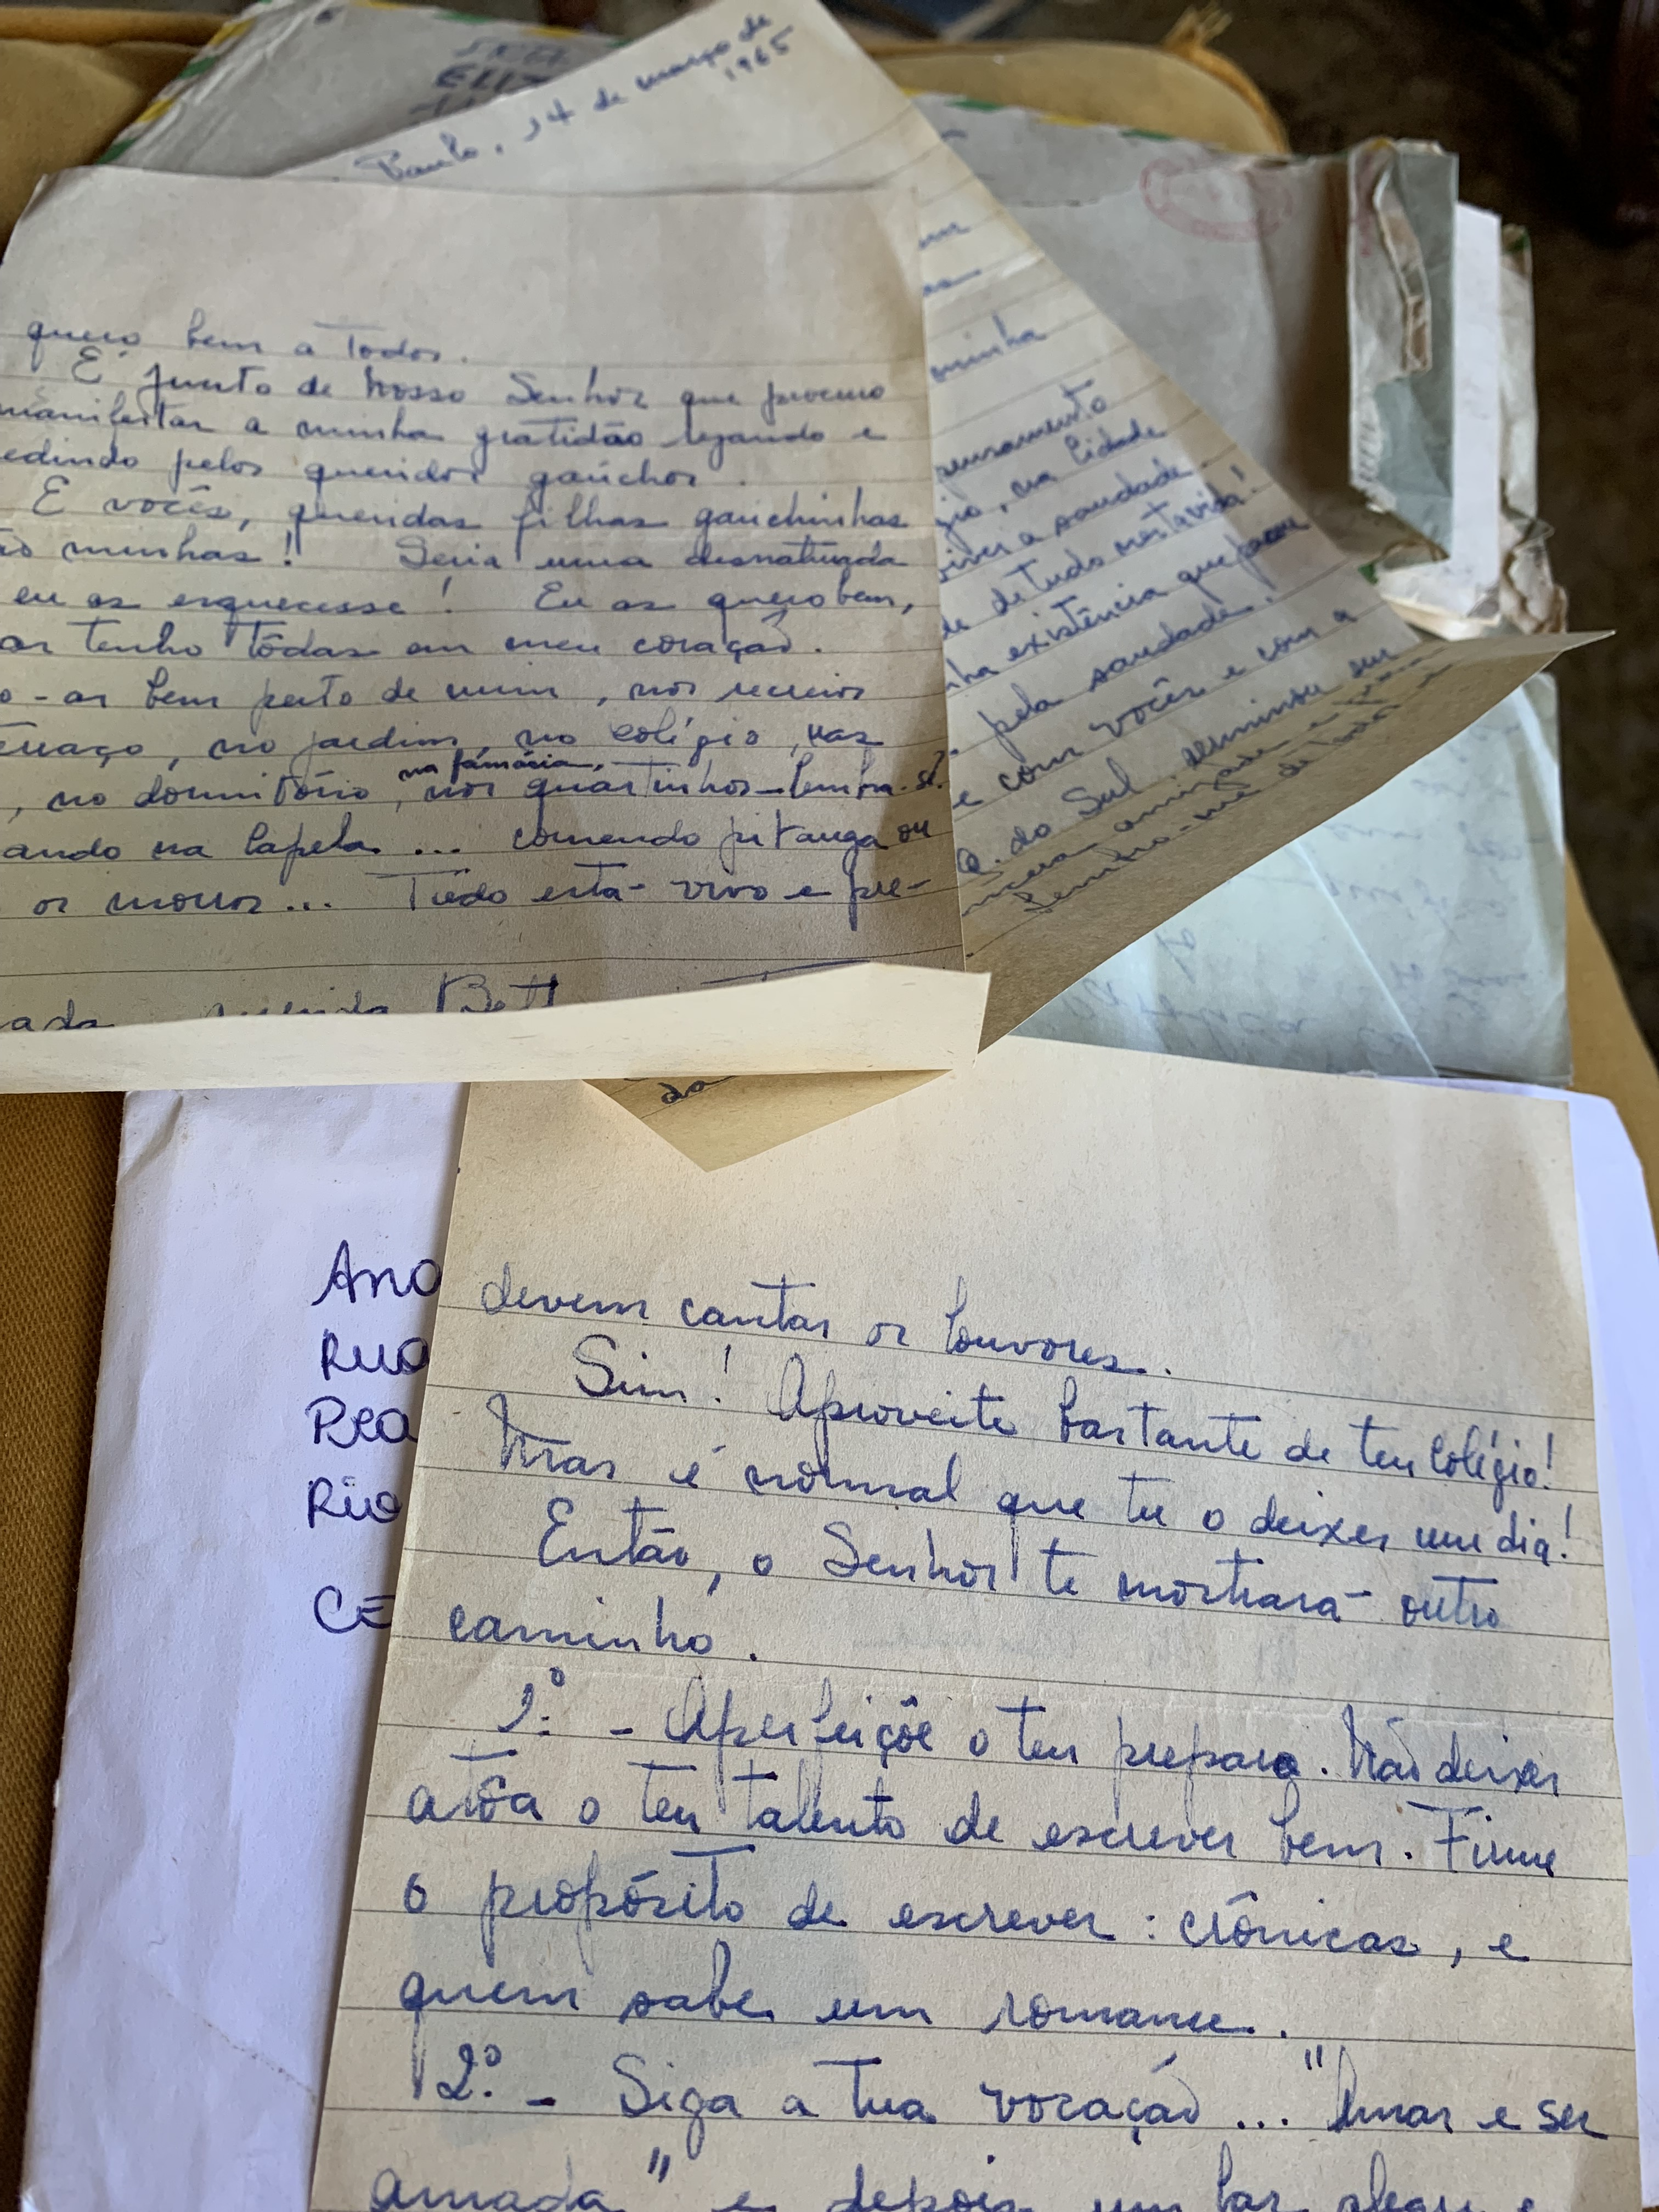 SRA.
Paulo, 14 de março de
1965
quero bem a todos.
É junto de Nosso Senhor que procuro
manifestar a minha gratidão rezando e
edindo pelos queridos gaúchos.
E vocês, queridas filhas gauchinhas
ão minhas! Seria uma desnaturada
eu as esquecesse! Eu as quero bem,
as tenho tôdas em meu coração.
o-as bem perto de mim, nos recreios
erraço, no jardim, no colégio, nas
, no dormitório, na farmácia, nos quartinhos-lembra-se?
ando na lapela... comendo pitanga ou
os morros... Tudo está vivo e pre-
ada querida Bett
minha
pensamento
gio, na cidade
a saudade
de de tudo nesta vida!
nha existência que passou
pela saudade!
e com vocês e com a
R. do Sul
meua amizade e
Lembro-me de tôdas e
da
Ana
Rua
Rio
CE
devem cantar os louvores.
Sim! Aproveite bastante de teu colégio!
Mas é normal que tu o deixes um dia!
Então, o Senhor te mostrará outro
caminho.
1º - Aperfeiçôe o teu preparo. Não deixes
atôa o teu talento de escrever bem. Firme
o propósito de escrever: crônicas, e
quem sabe um romance.
2º - Siga a tua vocação... "Amar e ser
amada" e depois um lar alegre e